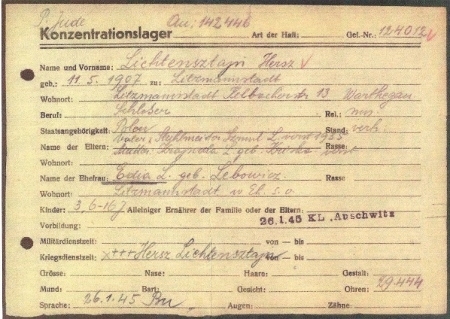 P. Jude Au: 142446
Konzentrationslager Art der Haft: Gef.-Nr.: 124012
Name und Vorname: Lichtensztajn Hersz
geb.: 11.5.1907 zu: Litzmannstadt
Wohnort: Litzmannstadt 13 Warthegau
Beruf: Schlosser Rel.: mos.
Staatsangehörigkeit: Polen Stand: verh.
Name der Eltern: Rasse:
Name der Ehefrau: Edzia L. geb. Lebowicz Rasse
Wohnort: Litzmannstadt
Kinder: 3, Alleiniger Ernährer der Familie oder der Eltern:
Vorbildung: 26.1.45 KL. Auschwitz
Militärdienstzeit: von — bis
Kriegsdienstzeit: +++ Hersz Lichtensztajn von — bis
Grösse: Nase: Haare: Gestalt:
Mund: Bart: Gesicht: Ohren: 29444
Sprache: 26.1.45 Augen: Zähne: